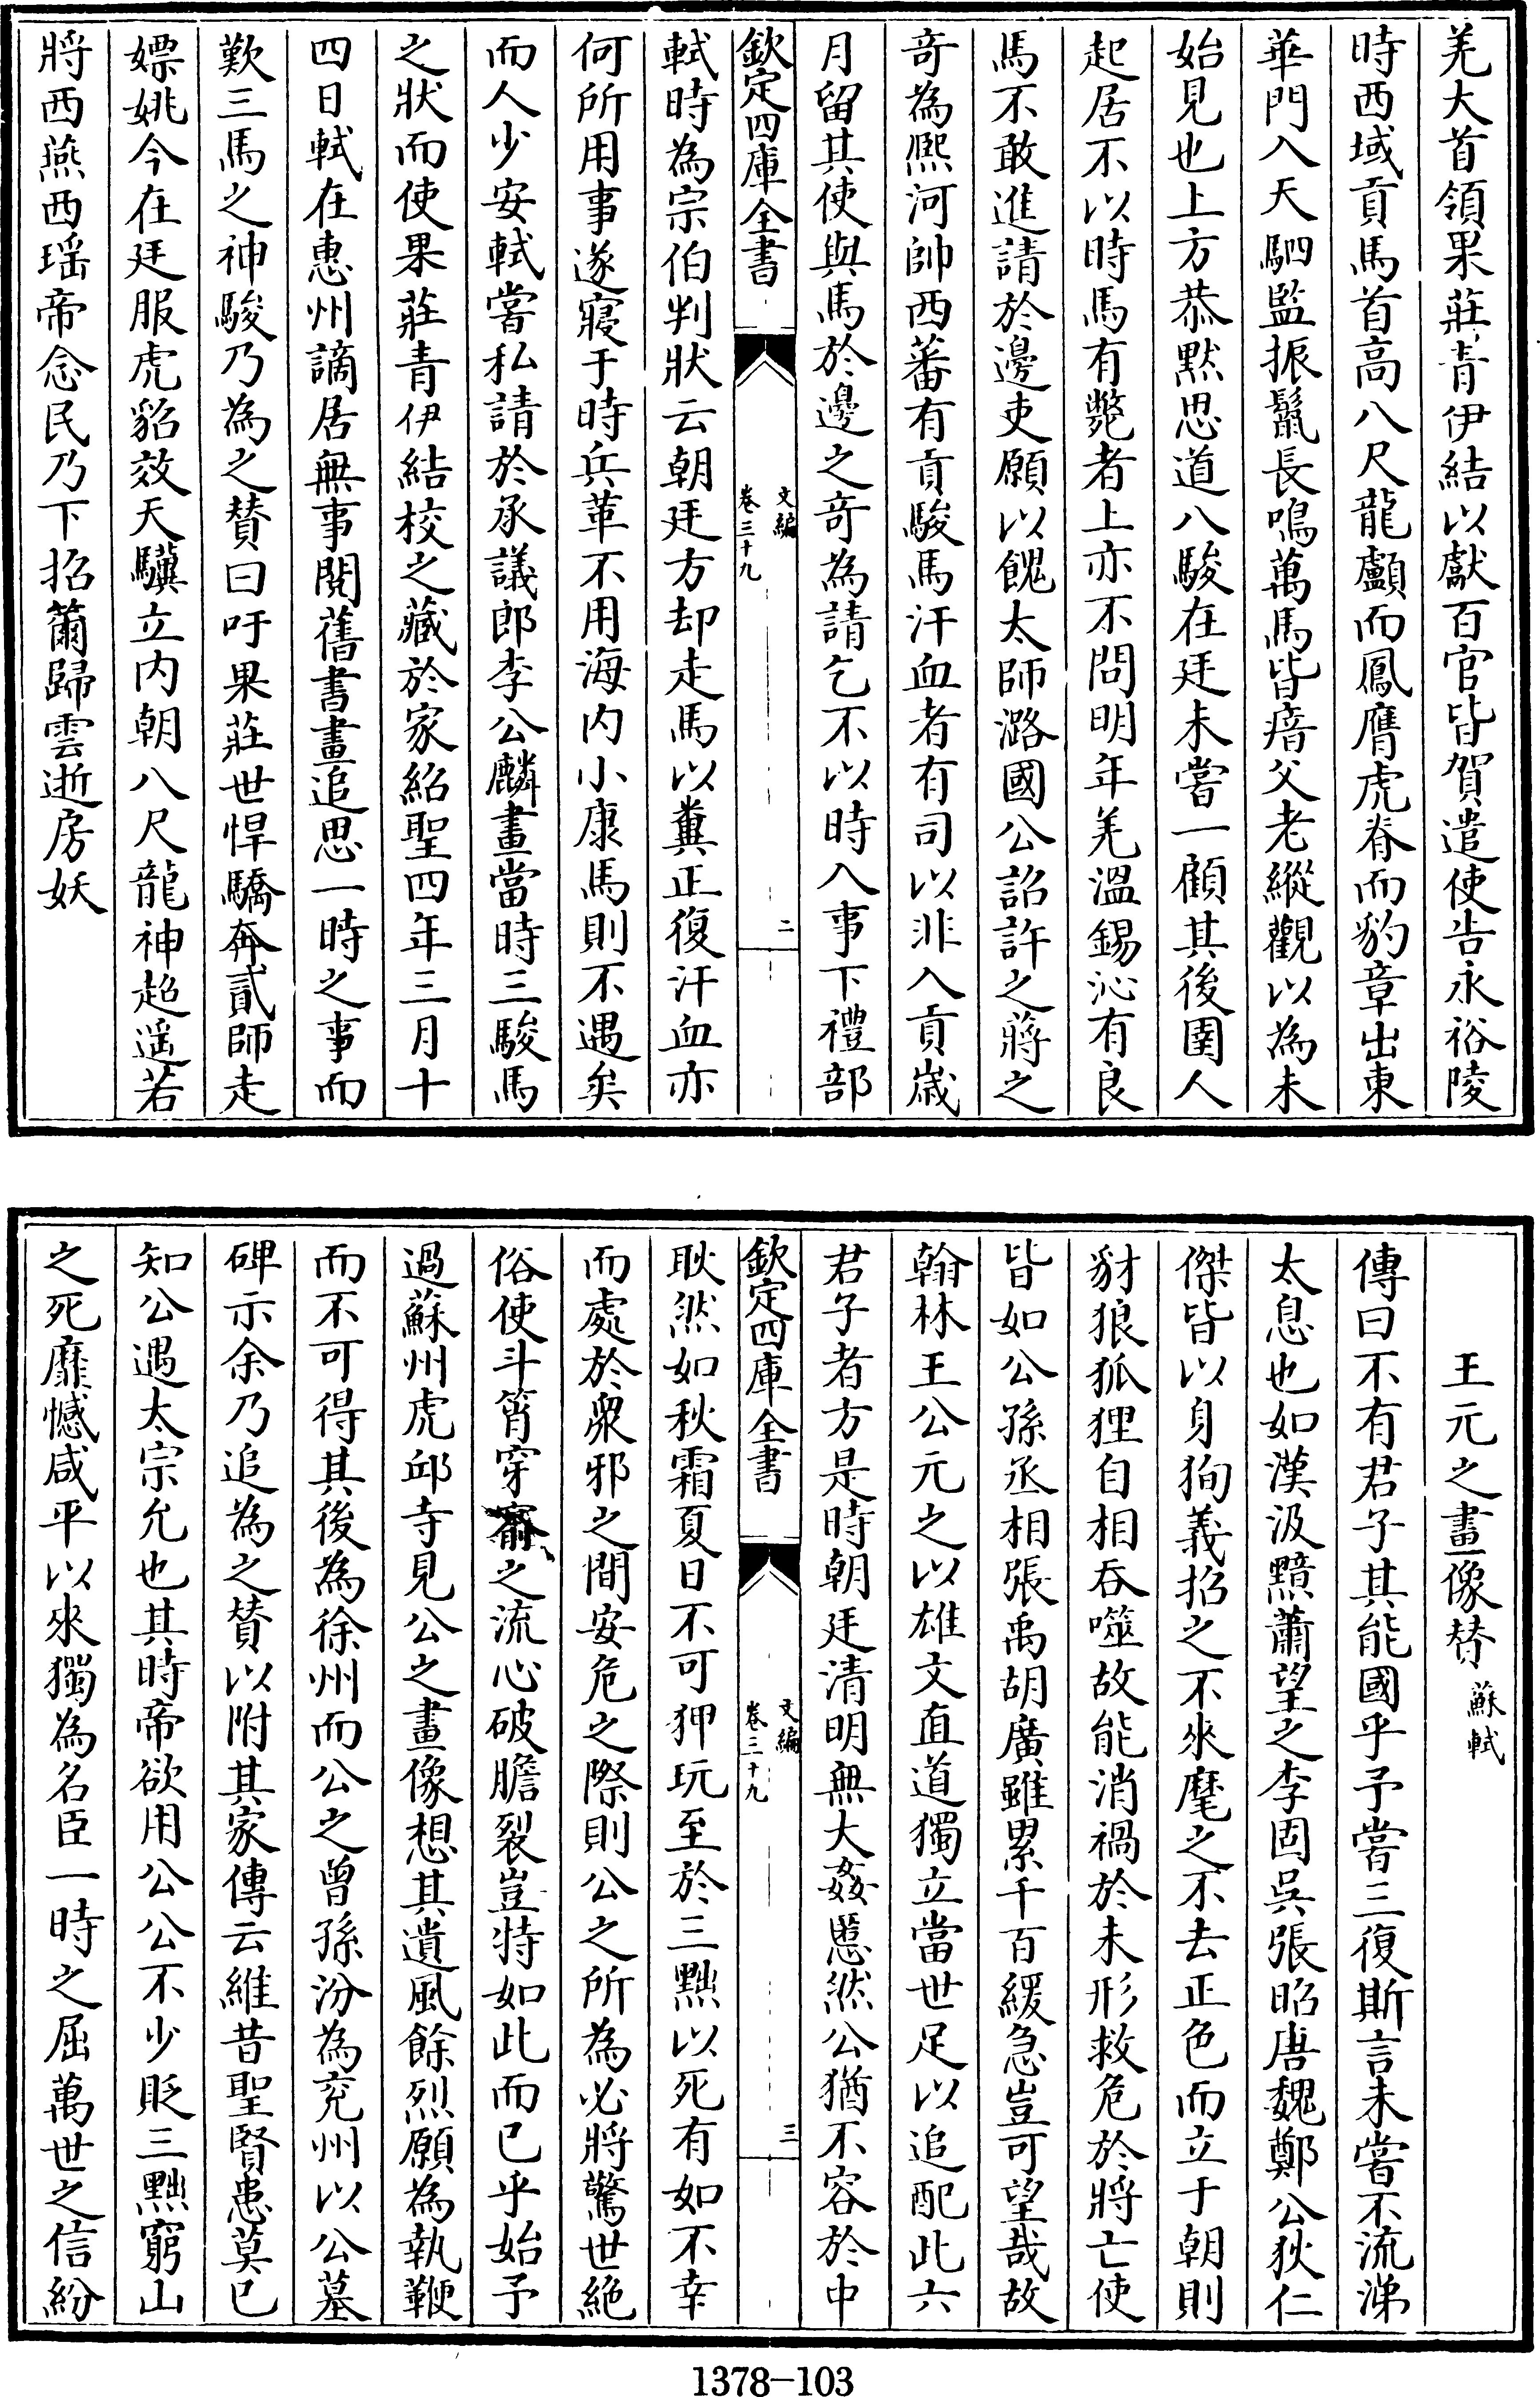 羌大首領果莊青伊結以獻百官皆賀遣使告永裕陵
時西域貢馬首高八尺龍顱而鳳膺虎脊而豹章出東
華門入天駟監振鬛長鳴萬馬皆瘖父老縱觀以為未
始見也上方恭黙思道八駿在廷未嘗一顧其後圉人
起居不以時馬有斃者上亦不問明年羌溫錫沁有良
馬不敢進請於邊吏願以餽太師潞國公詔許之蔣之
竒為熈河帥西蕃有貢駿馬汗血者有司以非入貢嵗
月留其使與馬於邊之竒為請乞不以時入事下禮部
欽定四庫全書
文編
卷三十九
二
軾時為宗伯判狀云朝廷方却走馬以糞正復汗血亦
何所用事遂寢于時兵革不用海内小康馬則不遇矣
而人少安軾嘗私請於承議郎李公麟畫當時三駿馬
之狀而使果莊青伊結校之藏於家紹聖四年三月十
四日軾在惠州謫居無事閱舊書畫追思一時之事而
歎三馬之神駿乃為之贊曰吁果莊世悍驕奔貳師走
嫖姚今在廷服虎貂效天驥立内朝八尺龍神超遥若
將西燕西瑶帝念民乃下招籋歸雲逝房妖
王元之畫像替 蘇軾
傳曰不有君子其能國乎予嘗三復斯言未嘗不流涕
太息也如漢汲黯蕭望之李固吳張昭唐魏鄭公狄仁
傑皆以身狥義招之不來麾之不去正色而立于朝則
豺狼狐狸自相吞噬故能消禍於未形救危於將亡使
皆如公孫丞相張禹胡廣雖累千百緩急豈可望哉故
翰林王公元之以雄文直道獨立當世足以追配此六
君子者方是時朝廷清明無大姦慝然公猶不容於中
欽定四庫全書
文編
卷三十九
三
耿然如秋霜夏日不可狎玩至於三黜以死有如不幸
而處於衆邪之間安危之際則公之所為必將驚世絶
俗使斗筲穿窬之流心破膽裂豈特如此而已乎始予
過蘇州虎邱寺見公之畫像想其遺風餘烈願為執鞭
而不可得其後為徐州而公之曾孫汾為兖州以公墓
碑示余乃追為之贊以附其家傳云維昔聖賢患莫已
知公遇太宗允也其時帝欲用公公不少貶三黜窮山
之死靡憾咸平以來獨為名臣一時之屈萬世之信紛
1378-103